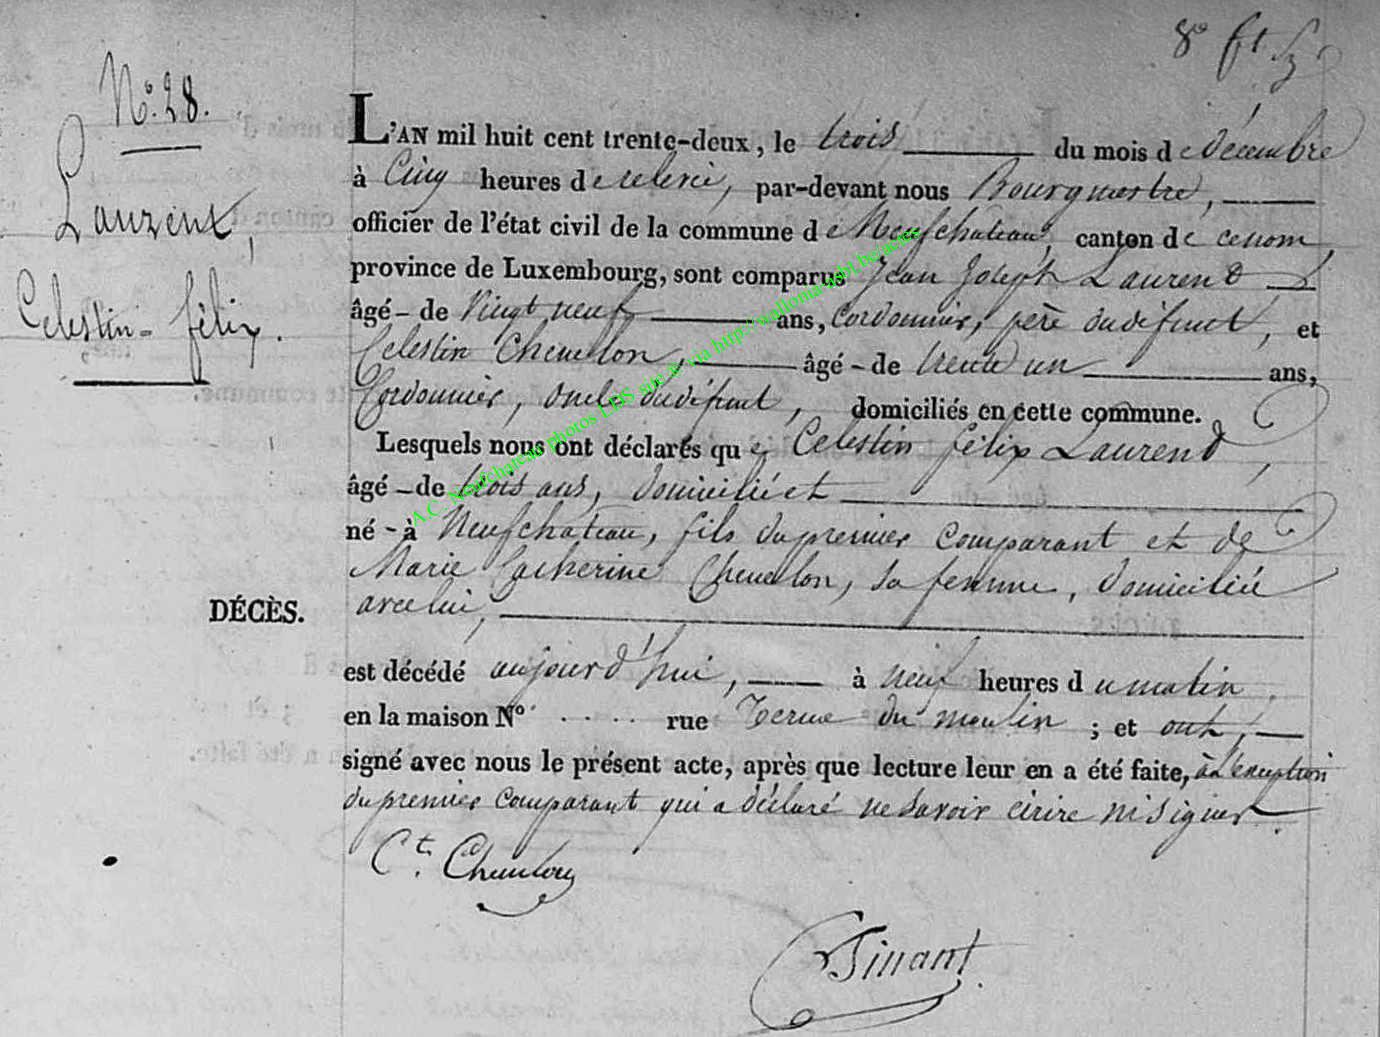 8e ft
N° 28.
Laurent,
Celestin-félix.
L'AN mil huit cent trente-deux, le trois du mois de décembre
à Cinq heures de relevée, par-devant nous Bourgmestre,
officier de l'état civil de la commune de Neufchateau, canton de ce nom
province de Luxembourg, sont comparus Jean Joseph Laurend
âgé – de Vingt neuf ans, Cordonnier, père du défunt, et
Celestin Cheuvlon, âgé – de trente un ans,
Cordonnier, oncle du défunt, domiciliés en cette commune.
Lesquels nous ont déclarés que Celestin félix Laurend,
âgé – de trois ans, domicilié et
né – à Neufchateau, fils du premier comparant et de
Marie Catherine Cheuvlon, sa femme, domiciliée
avec lui,
DÉCÈS.
est décédé aujourd'hui, à neuf heures du matin
en la maison N° . . . . . rue du moulin ; et ont,
signé avec nous le présent acte, après que lecture leur en a été faite, à l'exception
du premier comparant qui a déclaré ne savoir écrire ni signer.
Ct. Cheuvlon
Dinant
A.C. Neufchateau photos LDS sue.lu via http://wallonia-asbl.be/actes